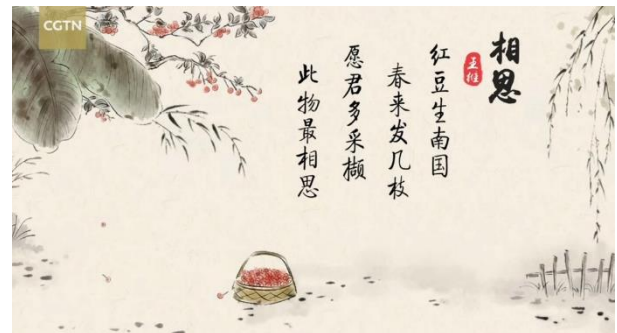 CGTN
相思
王维
红豆生南国
春来发几枝
愿君多采撷
此物最相思